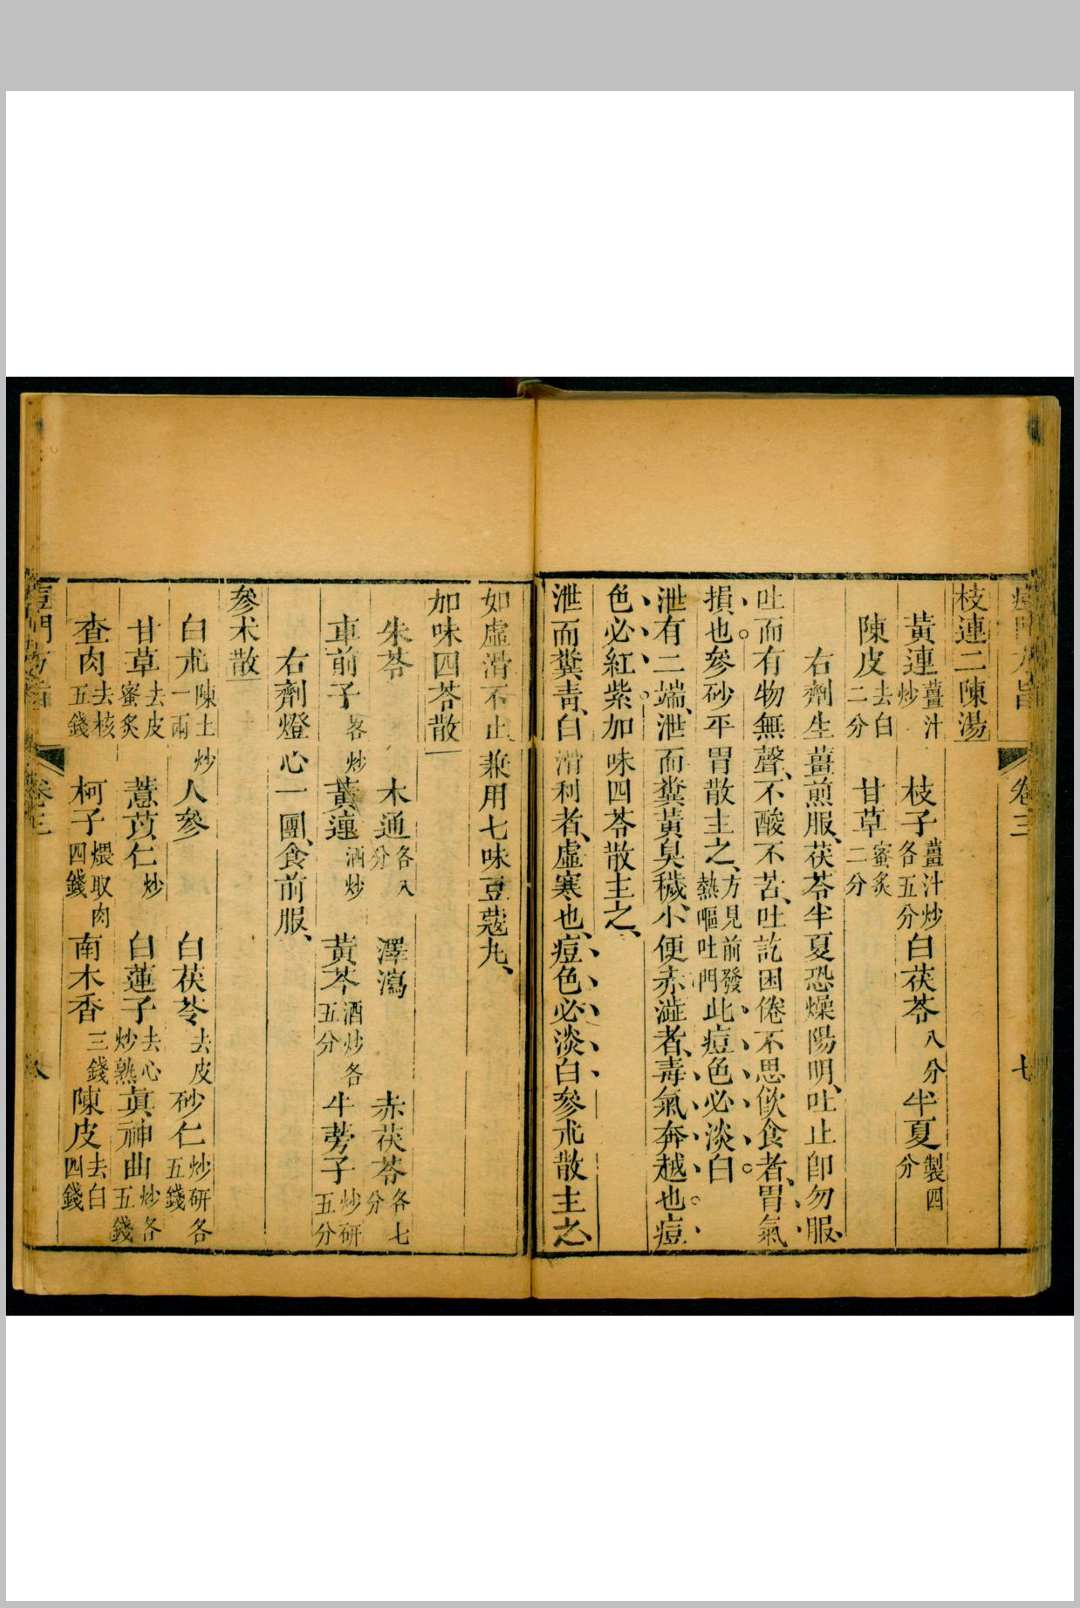 枝連二陳湯
黃連薑汁炒 枝子薑汁炒各五分 白茯苓八分 半夏製四分
陳皮去白二分 甘草蜜炙二分
右劑生薑煎服茯苓半夏恐燥陽明吐止卽勿服
吐而有物無聲不酸不苦吐訖困倦不思飲食者胃氣
損也參砂平胃散主之方見前發熱嘔吐門此痘色必淡白
泄有二端泄而糞黃臭穢小便赤澁者毒氣奔越也痘
色必紅紫加味四苓散主之
泄而糞靑白滑利者虛寒也痘色必淡白參朮散主之
卷三 七
如虛滑不止兼用七味豆蔻丸
加味四苓散
朱苓 木通各八分 澤瀉 赤茯苓各七分
車前子畧炒 黃連酒炒 黃芩酒炒各五分 牛蒡子炒研五分
右劑燈心一團食前服
參术散
白朮陳土炒一兩 人參 白茯苓去皮 砂仁炒研各五錢
甘草去皮蜜炙 薏苡仁炒 白蓮子去心炒熟 眞神曲炒各五錢
查肉去核五錢 柯子煨取肉四錢 南木香三錢 陳皮去白四錢
卷三 八